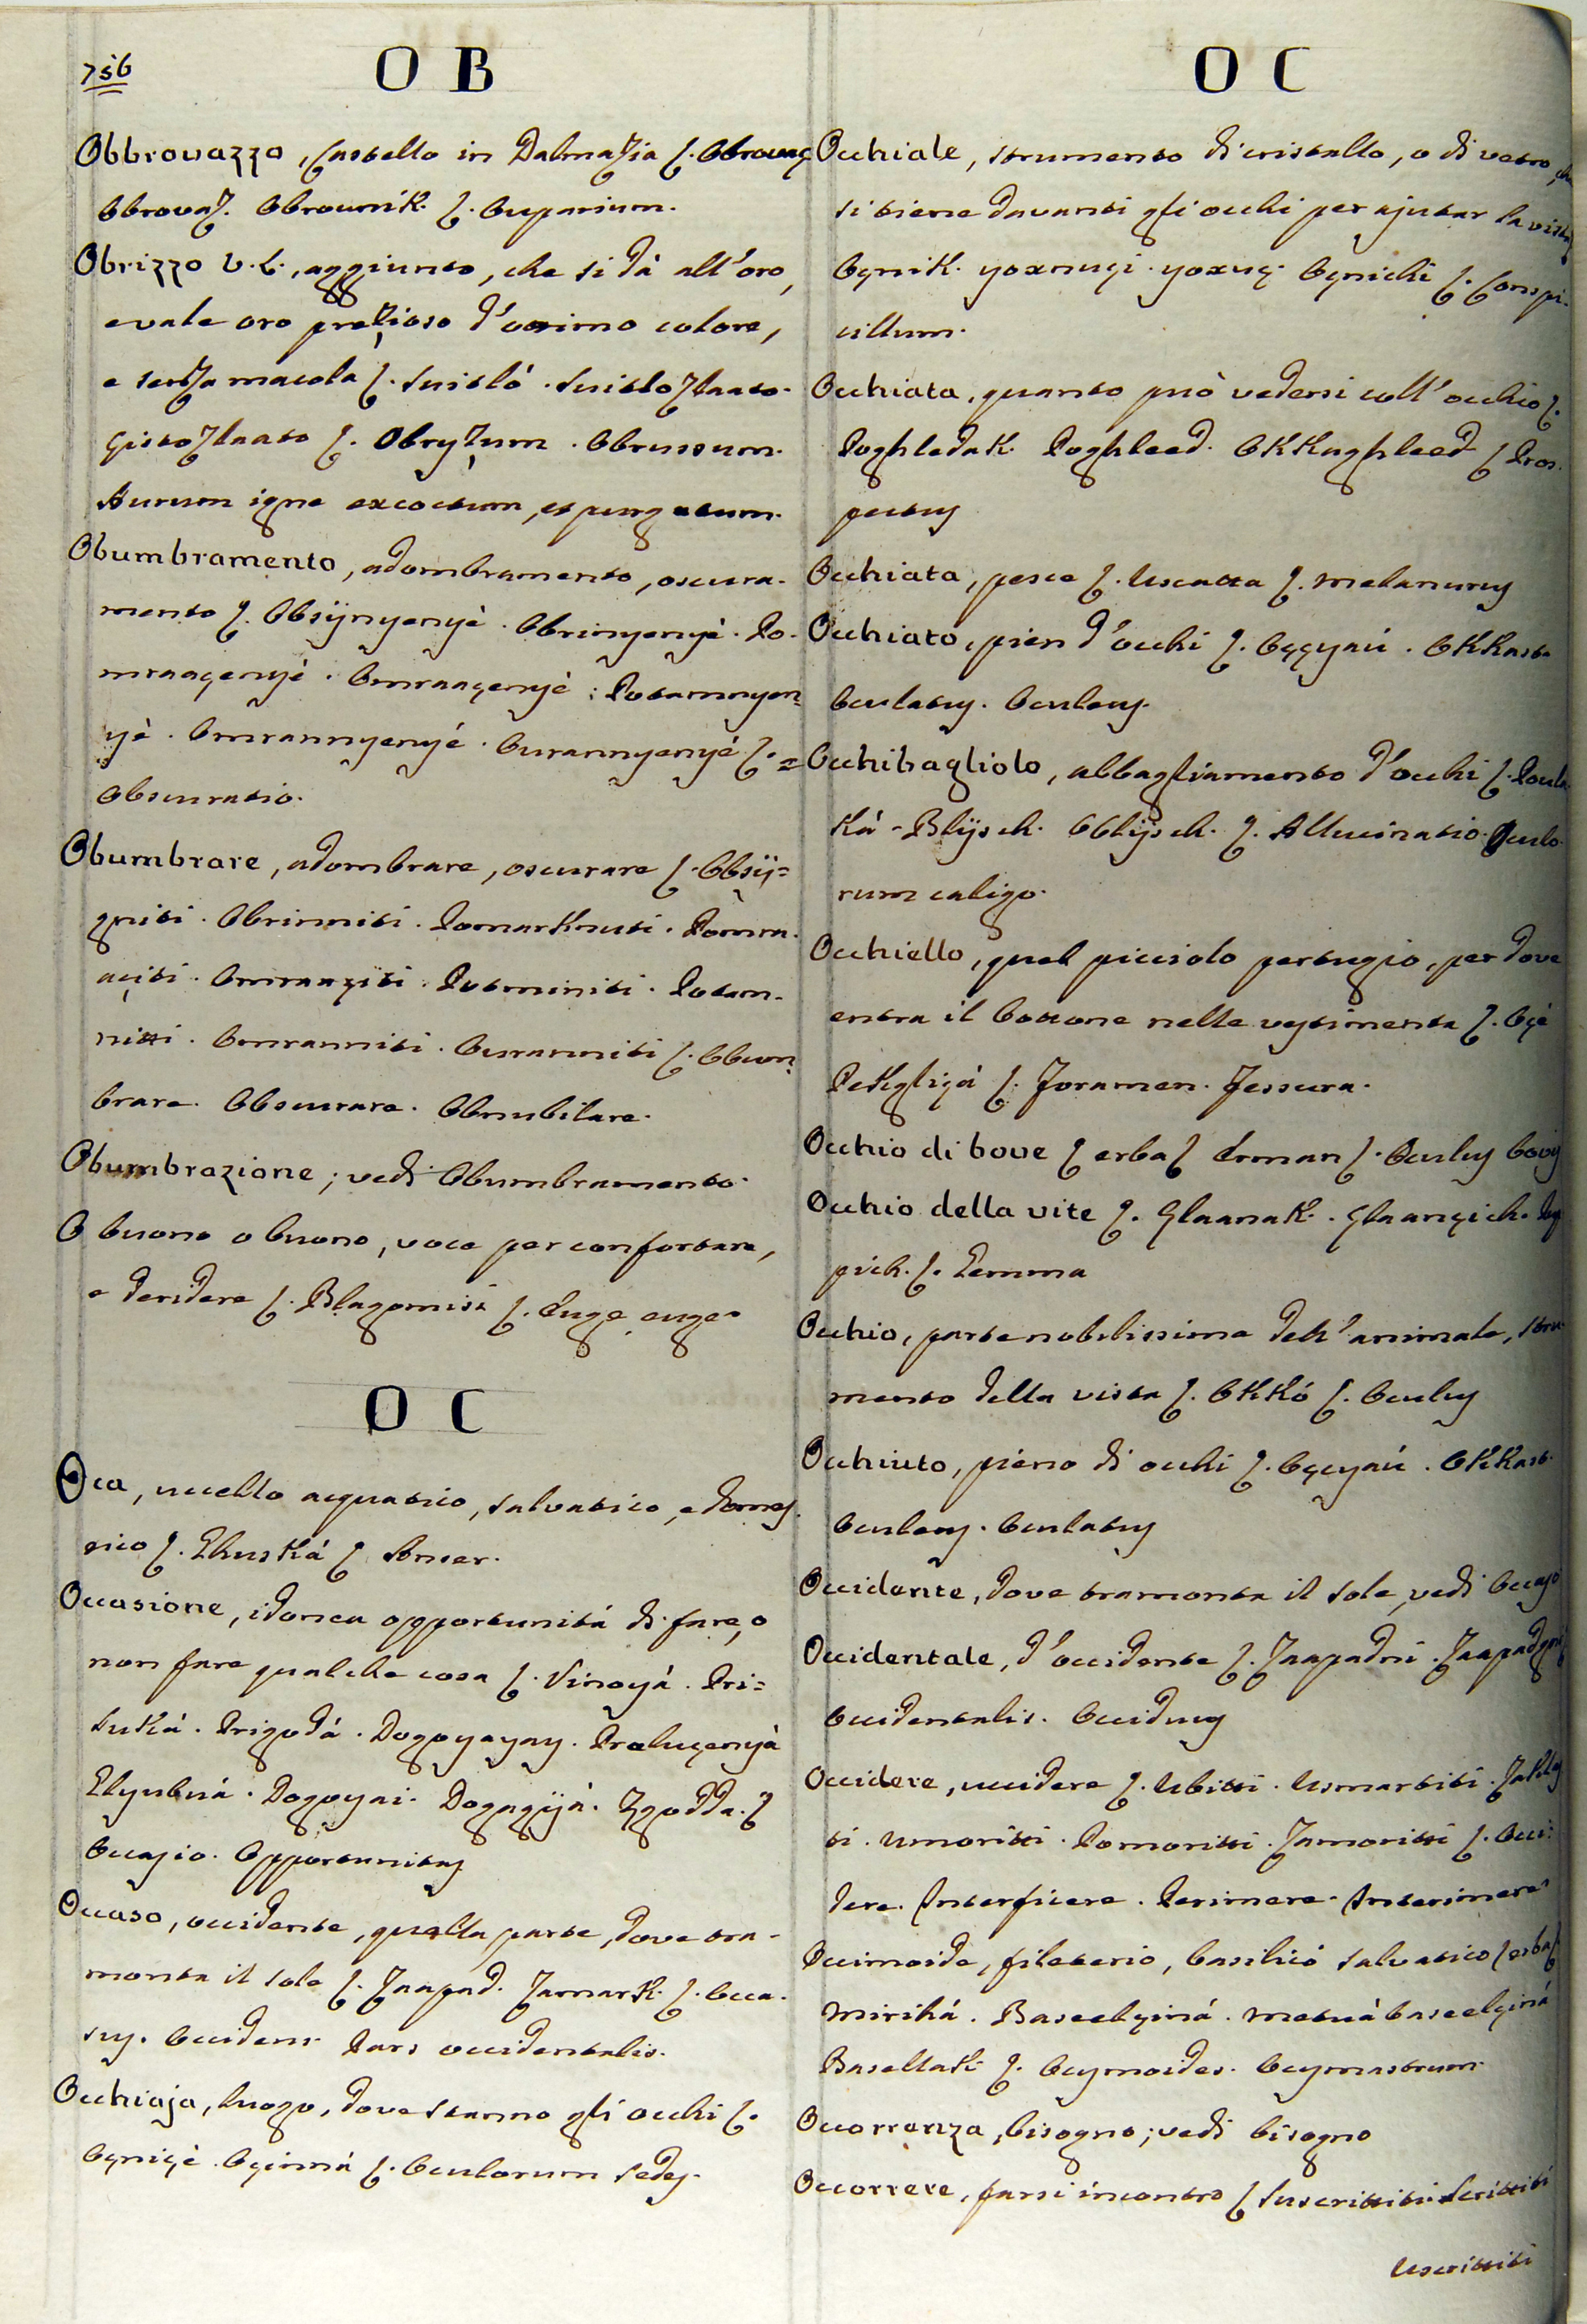 756
O B
Obbrovazzo, Castello in Dalmazia ſ. Obrovaç
Obrovaz. Obrovnik. ſ. Cuparium.
Obrizzo V. L., aggiunto, che si dà all'oro,
e vale oro prezioso d'ottimo colore,
e senza macola ſ. Suitló. Suitlozlaato.
Çistozlaato ſ. Obryzum. Obrussum.
Aurum igne excoctum, et purgatum.
Obumbramento, adombramento, oscura-
mento ſ. Obsijnyenyè. Obrinyenyè. Po-
mraaçenyè. Omraaçenyè. Potamnyen=
yè. Omrannyenyé. Ourannyenyé ſ. =
Obscuratio.
Obumbrare, adombrare, oscurare ſ. Obsij=
gniti. Obrinniti. Pomarknuti. Pomra-
açiti. Omraaçiti. Potminiti. Potam-
nitti. Omranniti. Ouranniti ſ. Obum=
brare. Obscurare. Obnubilare.
Obumbrazione; vedi Obumbramento.
O buono o buono, voce per confortare,
e deridere ſ. Blagomisi ſ. Euge euge
O C
Oca, uccello acquatico, salvatico, e domes-
tico ſ. Ghuská ſ Anser.
Occasione, idonea opportunitá di fare, o
non fare qualche cosa ſ. Vinoyá. Pri=
luká. Prigodá. Dogoyayay. Praluçenyà
Glyubuá. Dogoyai. Dogagyjá. Zgodda. ſ
Occasio. Opportunitas
Occaso, occidente, quella parte, dove tra-
monta il sole ſ. Zaapad. Zamark. ſ. Occa-
sus. Occidens. Pars occidentalis.
Occhiaja, luogo, dove stanno gli occhi ſ.
Oçniçè. Oçinná ſ. Oculorum sedes.
O C
Occhiale, strumento di cristallo, o di vetro, che
si tiene davanti gli occhi per ajutar la vista
Oçnik. yoxnuçi. yoxuç. Oçnichi ſ. Conspi-
cillum.
Occhiata, quanto può vedersi coll'occhio ſ.
Poghledak. Poghleed. Okkughleed ſ Pros-
pectus
Occhiata, pesce ſ. Uscatta ſ. melanurus
Occhiato, pien d'occhi ſ. Oççyaú. Okkasta
Oculatus. Oculeus.
Occhibagliolo, abbagliamento d'occhi ſ.
ká. Blijsch. Oblijsch. ſ. Allucinatio. Oculo-
rum caligo.
Occhiello, quel picciolo pertugio, per dove
entra il bottone nelle vestimenta ſ. Oçé
Petgliçá ſ. Foramen. Fessura.
Occhio di bove ſ erba ſ Arman ſ. Oculus bovis
Occhio della vite ſ. Glaanak. Glaançich.
pich. ſ. Gemma
Occhio, parte nobilissima dell'animale, stru-
mento della vista ſ. Okkó ſ. Oculus
Occhiuto, pieno di occhi ſ. Oçcyaú. Okkast.
Oculeus. Oculatus
Occidente, dove tramonta il sole, vedi Occaso
Occidentale, d'occidente ſ. Zaapadni.
Occidentalis. Occiduus
Occidere, uccidere ſ. Ubitti. Usmartiti.
ti. Umoritti. Pomoritti. Zamoritti ſ. Occi-
dere. Interficere. Perimere. Interimere
Occimoide, fileterio, basilicó salvatico ſ erba ſ
Mirihá. Baseelçiná. Metuà baseelçiná
Basellak ſ. Ocymoides. Ocymastrum.
Occorrenza, bisogno; vedi bisogno
Occorrere, farsi incontro ſ Suscrittiti. Scrittiti
Uscrittiti